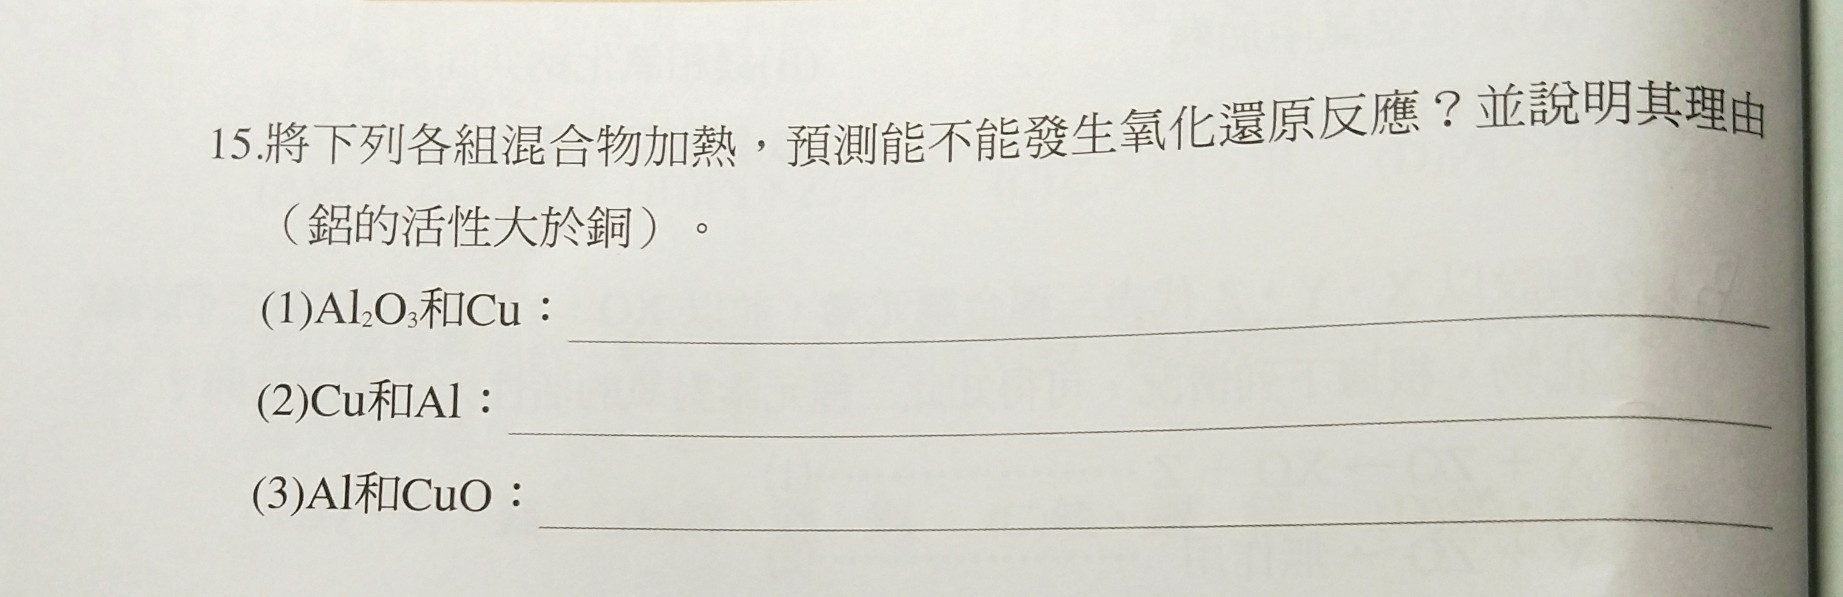 15.將下列各組混合物加熱，預測能不能發生氧化還原反應？並說明其理由
（鋁的活性大於銅）。
(1)Al₂O₃和Cu：
(2)Cu和Al：
(3)Al和CuO：